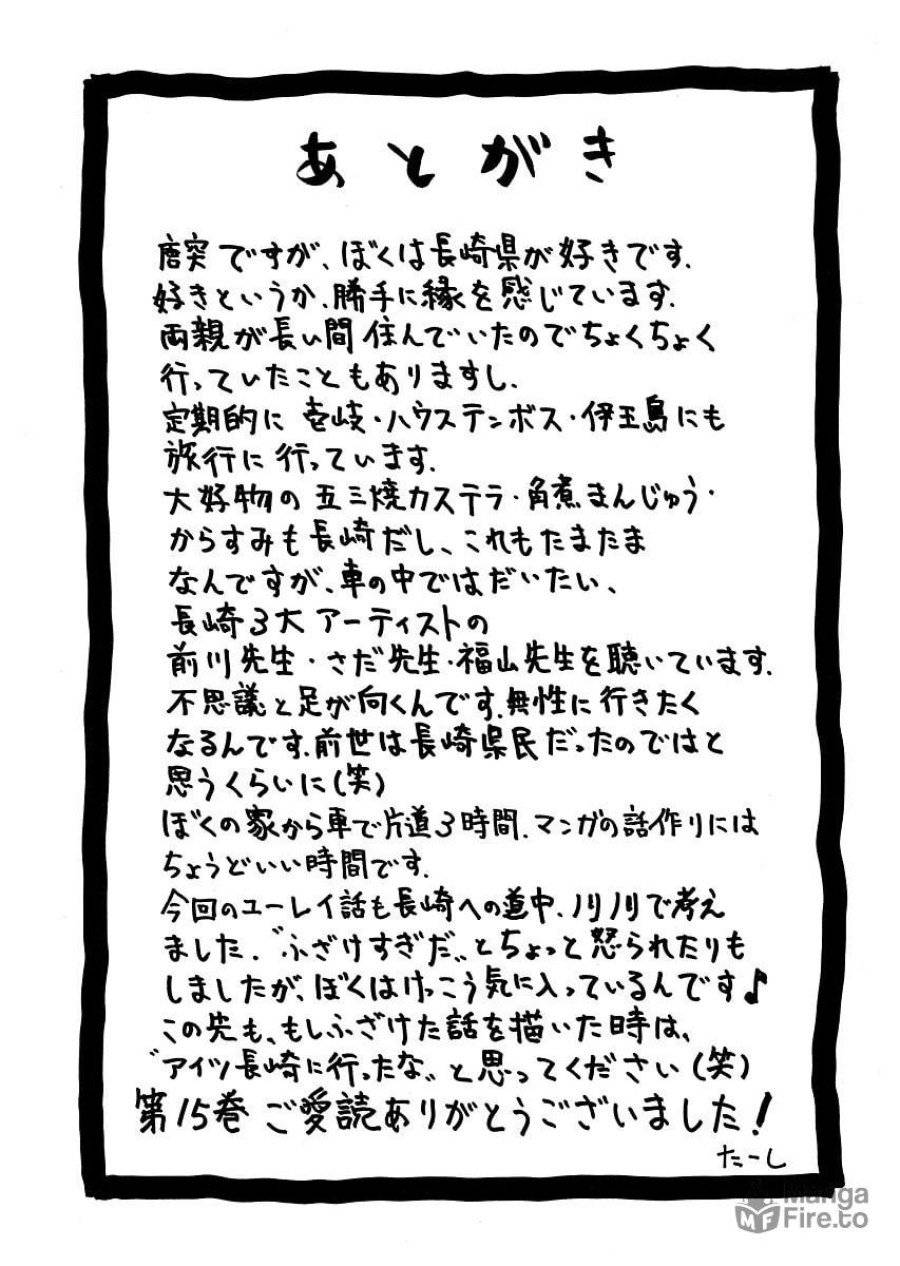 あとがき
唐突ですが、ぼくは長崎県が好きです.
好きというか、勝手に縁を感じています.
両親が長い間住んでいたのでちょくちょく
行っていたこともありますし.
定期的に壱岐・ハウステンボス・伊王島にも
旅行に行っています.
大好物の五三焼カステラ・角煮まんじゅう・
からすみも長崎だし、これもたまたま
なんですが、車の中ではだいたい、
長崎3大アーティストの
前川先生・さだ先生・福山先生を聴いています.
不思議と足が向くんです.無性に行きたく
なるんです.前世は長崎県民だったのではと
思うくらいに(笑)
ぼくの家から車で片道3時間.マンガの話作りには
ちょうどいい時間です.
今回のユーレイ話も長崎への道中、ノリノリで考え
ました.〝ふざけすぎだ〟とちょっと怒られたりも
しましたが、ぼくはけっこう気に入っているんです♪
この先も、もしふざけた話を描いた時は、
〝アイツ長崎に行ったな〟と思ってください(笑)
第15巻ご愛読ありがとうございました!
たーし
Manga
MF Fire.to